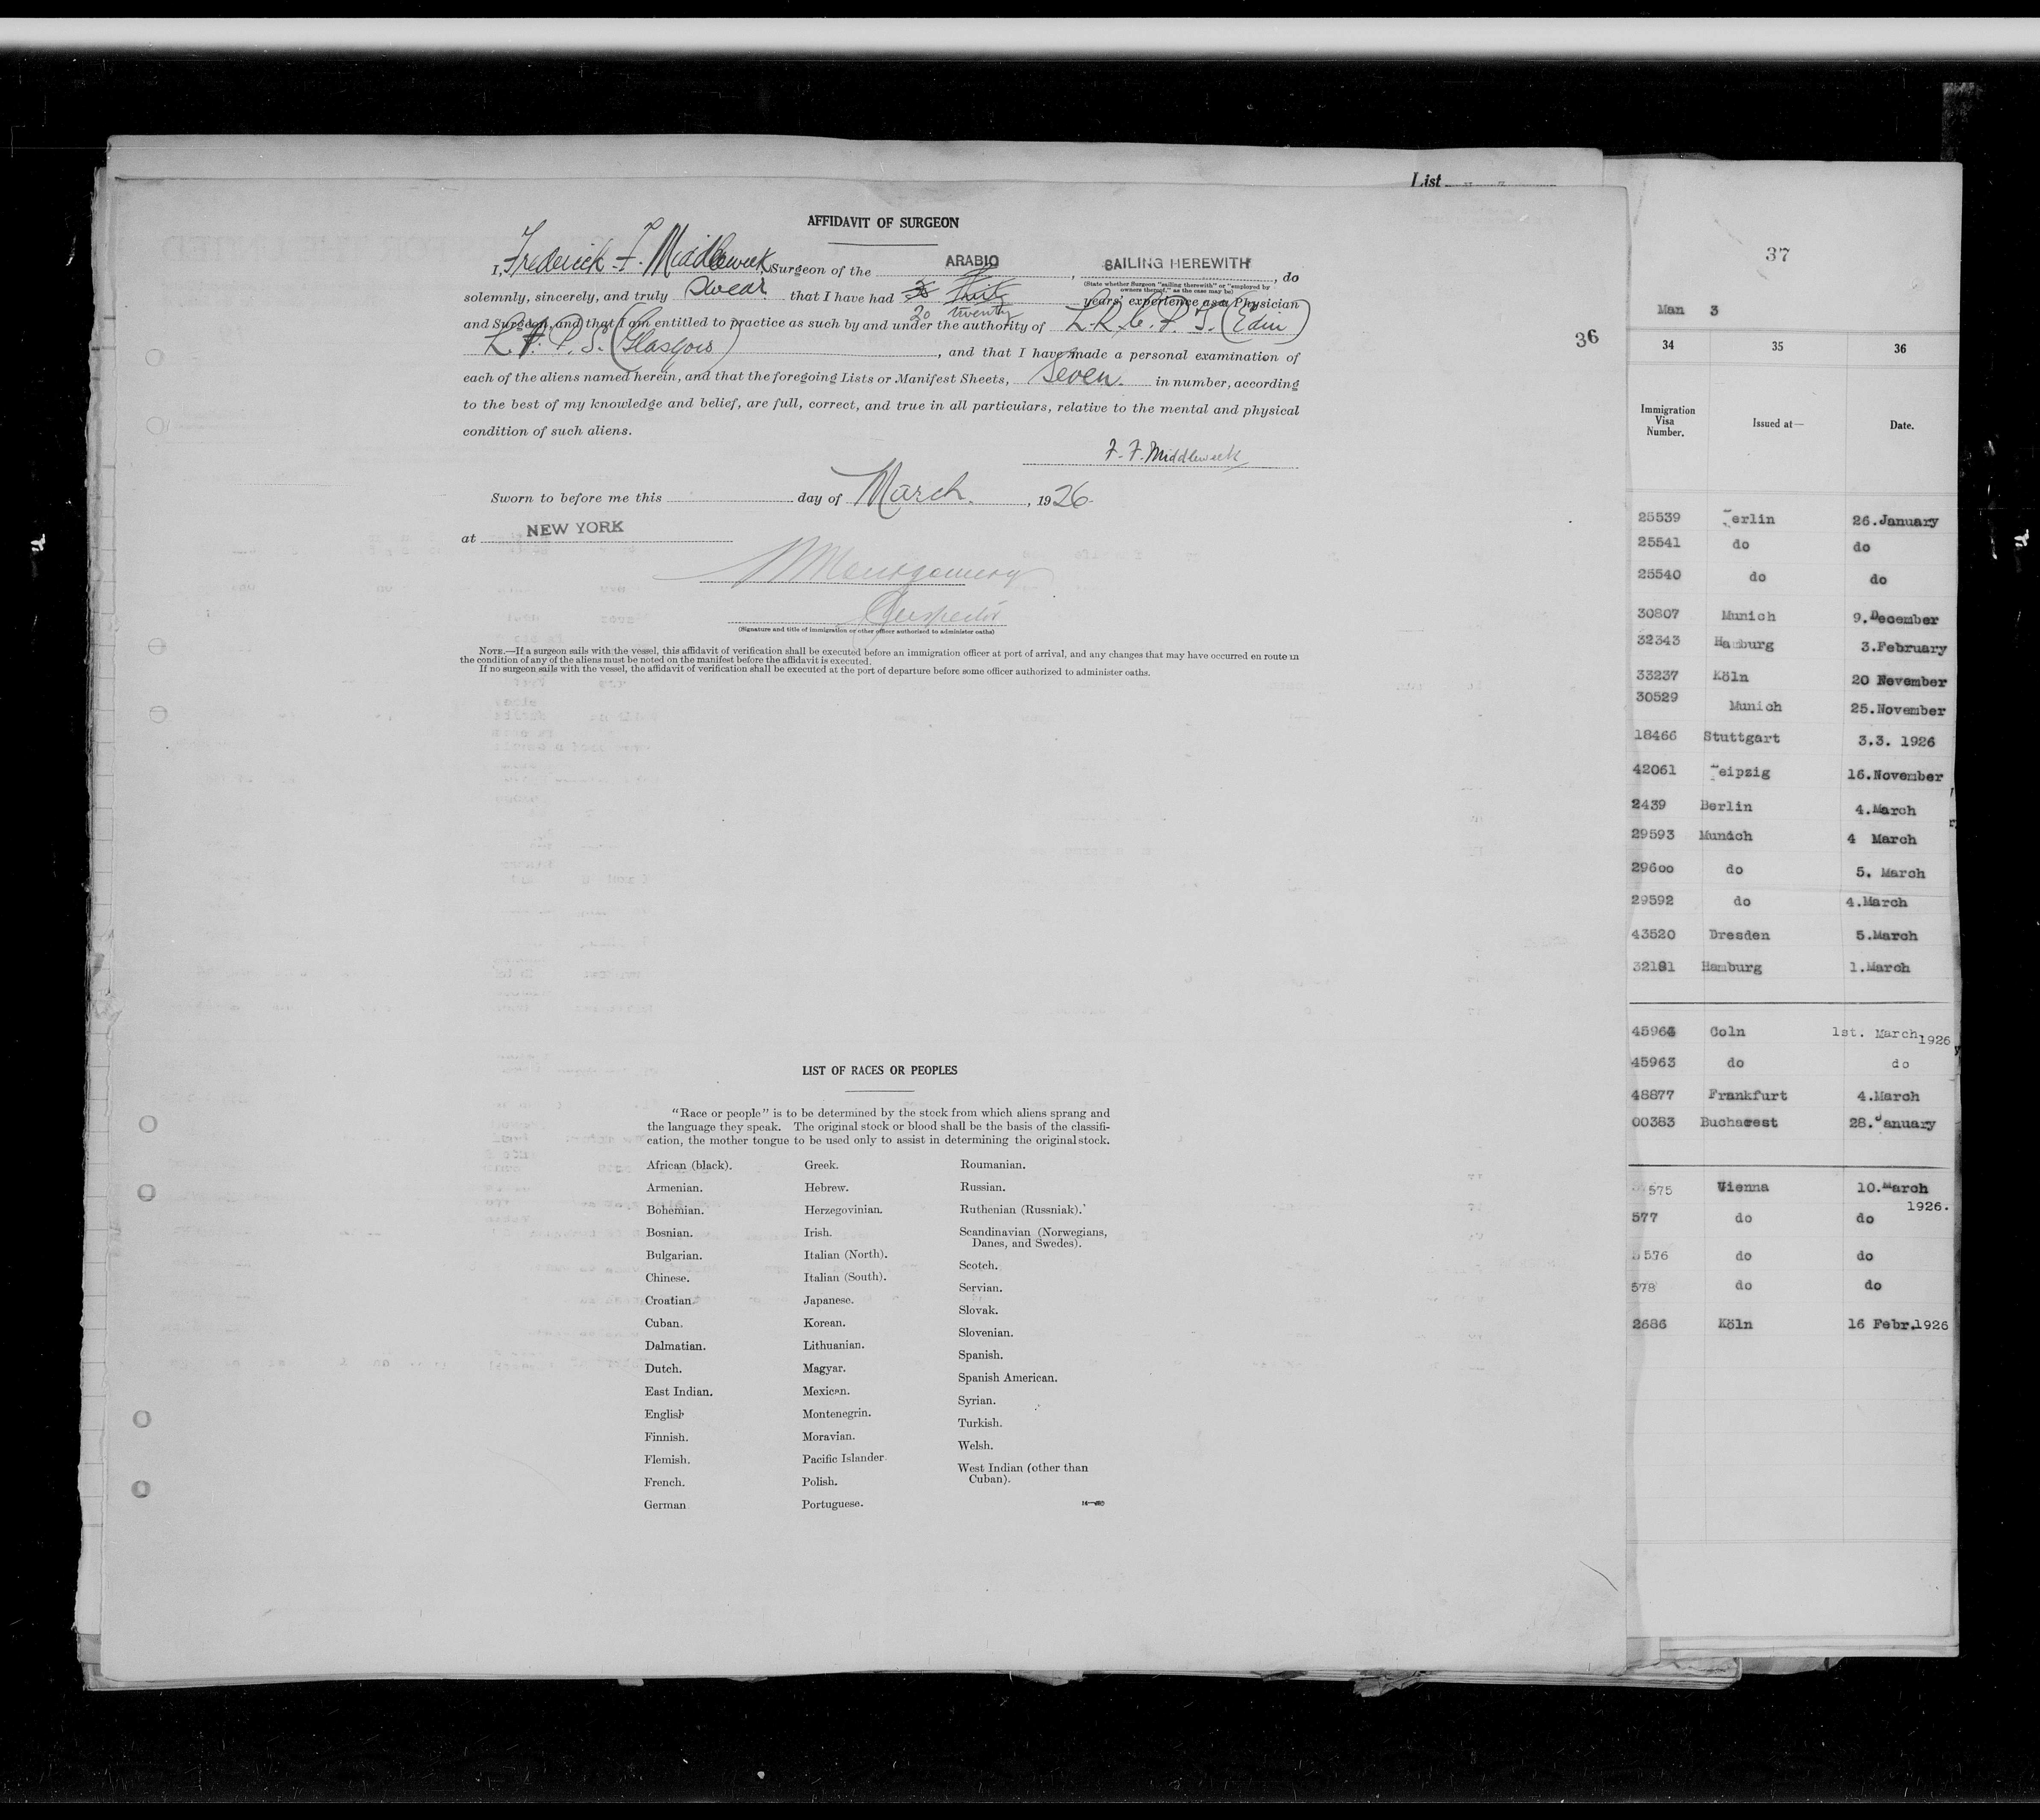 List
AFFIDAVIT OF SURGEON
I, Frederick F. Middleweek, Surgeon of the ARABIC, SAILING HEREWITH, do
(State whether Surgeon "sailing therewith" or "employed by owners thereof," as the case may be)
solemnly, sincerely, and truly swear that I have had years' experience as a Physician
20 twenty
and Surgeon, and that I am entitled to practice as such by and under the authority of L.R.C.P.S. (Edin)
L.F.P.S. (Glasgow), and that I have made a personal examination of
each of the aliens named herein, and that the foregoing Lists or Manifest Sheets, seven in number, according
to the best of my knowledge and belief, are full, correct, and true in all particulars, relative to the mental and physical
condition of such aliens.
F. F. Middleweek
Sworn to before me this day of March, 1926
at NEW YORK
Montgomery
Inspector
(Signature and title of immigration or other officer authorized to administer oaths)
NOTE.—If a surgeon sails with the vessel, this affidavit of verification shall be executed before an immigration officer at port of arrival, and any changes that may have occurred en route in
the condition of any of the aliens must be noted on the manifest before the affidavit is executed.
If no surgeon sails with the vessel, the affidavit of verification shall be executed at the port of departure before some officer authorized to administer oaths.
36
LIST OF RACES OR PEOPLES
"Race or people" is to be determined by the stock from which aliens sprang and
the language they speak. The original stock or blood shall be the basis of the classifi-
cation, the mother tongue to be used only to assist in determining the original stock.
African (black).
Armenian.
Bohemian.
Bosnian.
Bulgarian.
Chinese.
Croatian.
Cuban.
Dalmatian.
Dutch.
East Indian.
English
Finnish.
Flemish.
French.
German
Greek.
Hebrew.
Herzegovinian.
Irish.
Italian (North).
Italian (South).
Japanese.
Korean.
Lithuanian.
Magyar.
Mexican.
Montenegrin.
Moravian.
Pacific Islander.
Polish.
Portuguese.
Roumanian.
Russian.
Ruthenian (Russniak).
Scandinavian (Norwegians,
Danes, and Swedes).
Scotch.
Servian.
Slovak.
Slovenian.
Spanish.
Spanish American.
Syrian.
Turkish.
Welsh.
West Indian (other than
Cuban).
37
Man 3
34 35 36
Immigration Visa Number. Issued at— Date.
25539 erlin 26.January
25541 do do
25540 do do
30807 Munich 9.December
32343 Hamburg 3.February
33237 Köln 20 November
30529 Munich 25.November
18466 Stuttgart 3.3. 1926
42061 eipzig 16.November
2439 Berlin 4.March
29593 Munich 4 March
29600 do 5. March
29592 do 4.March
43520 Dresden 5.March
32191 Hamburg 1.March
45964 Coln 1st. March 1926
45963 do do
48877 Frankfurt 4.March
00383 Bucharest 28.January
575 Vienna 10.March
1926.
577 do do
576 do do
578 do do
2686 Köln 16 Febr.1926